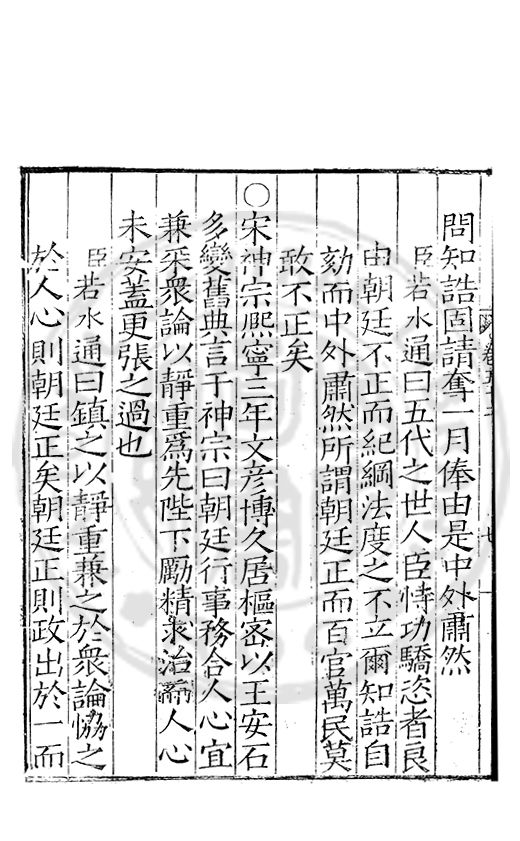 問知誥固請奪一月俸由是中外肅然
臣若水通曰五代之世人臣恃功驕恣者良
由朝廷不正而紀綱法度之不立爾知誥自
劾而中外肅然所謂朝廷正而百官萬民莫
敢不正矣
○宋神宗熈寧三年文彦博久居樞密以王安石
多變舊典言于神宗曰朝廷行事務合人心宜
兼采衆論以靜重爲先陛下勵精求治而人心
未安蓋更張之過也
臣若水通曰鎮之以靜重兼之於衆論恊之
於人心則朝廷正矣朝廷正則政出於一而